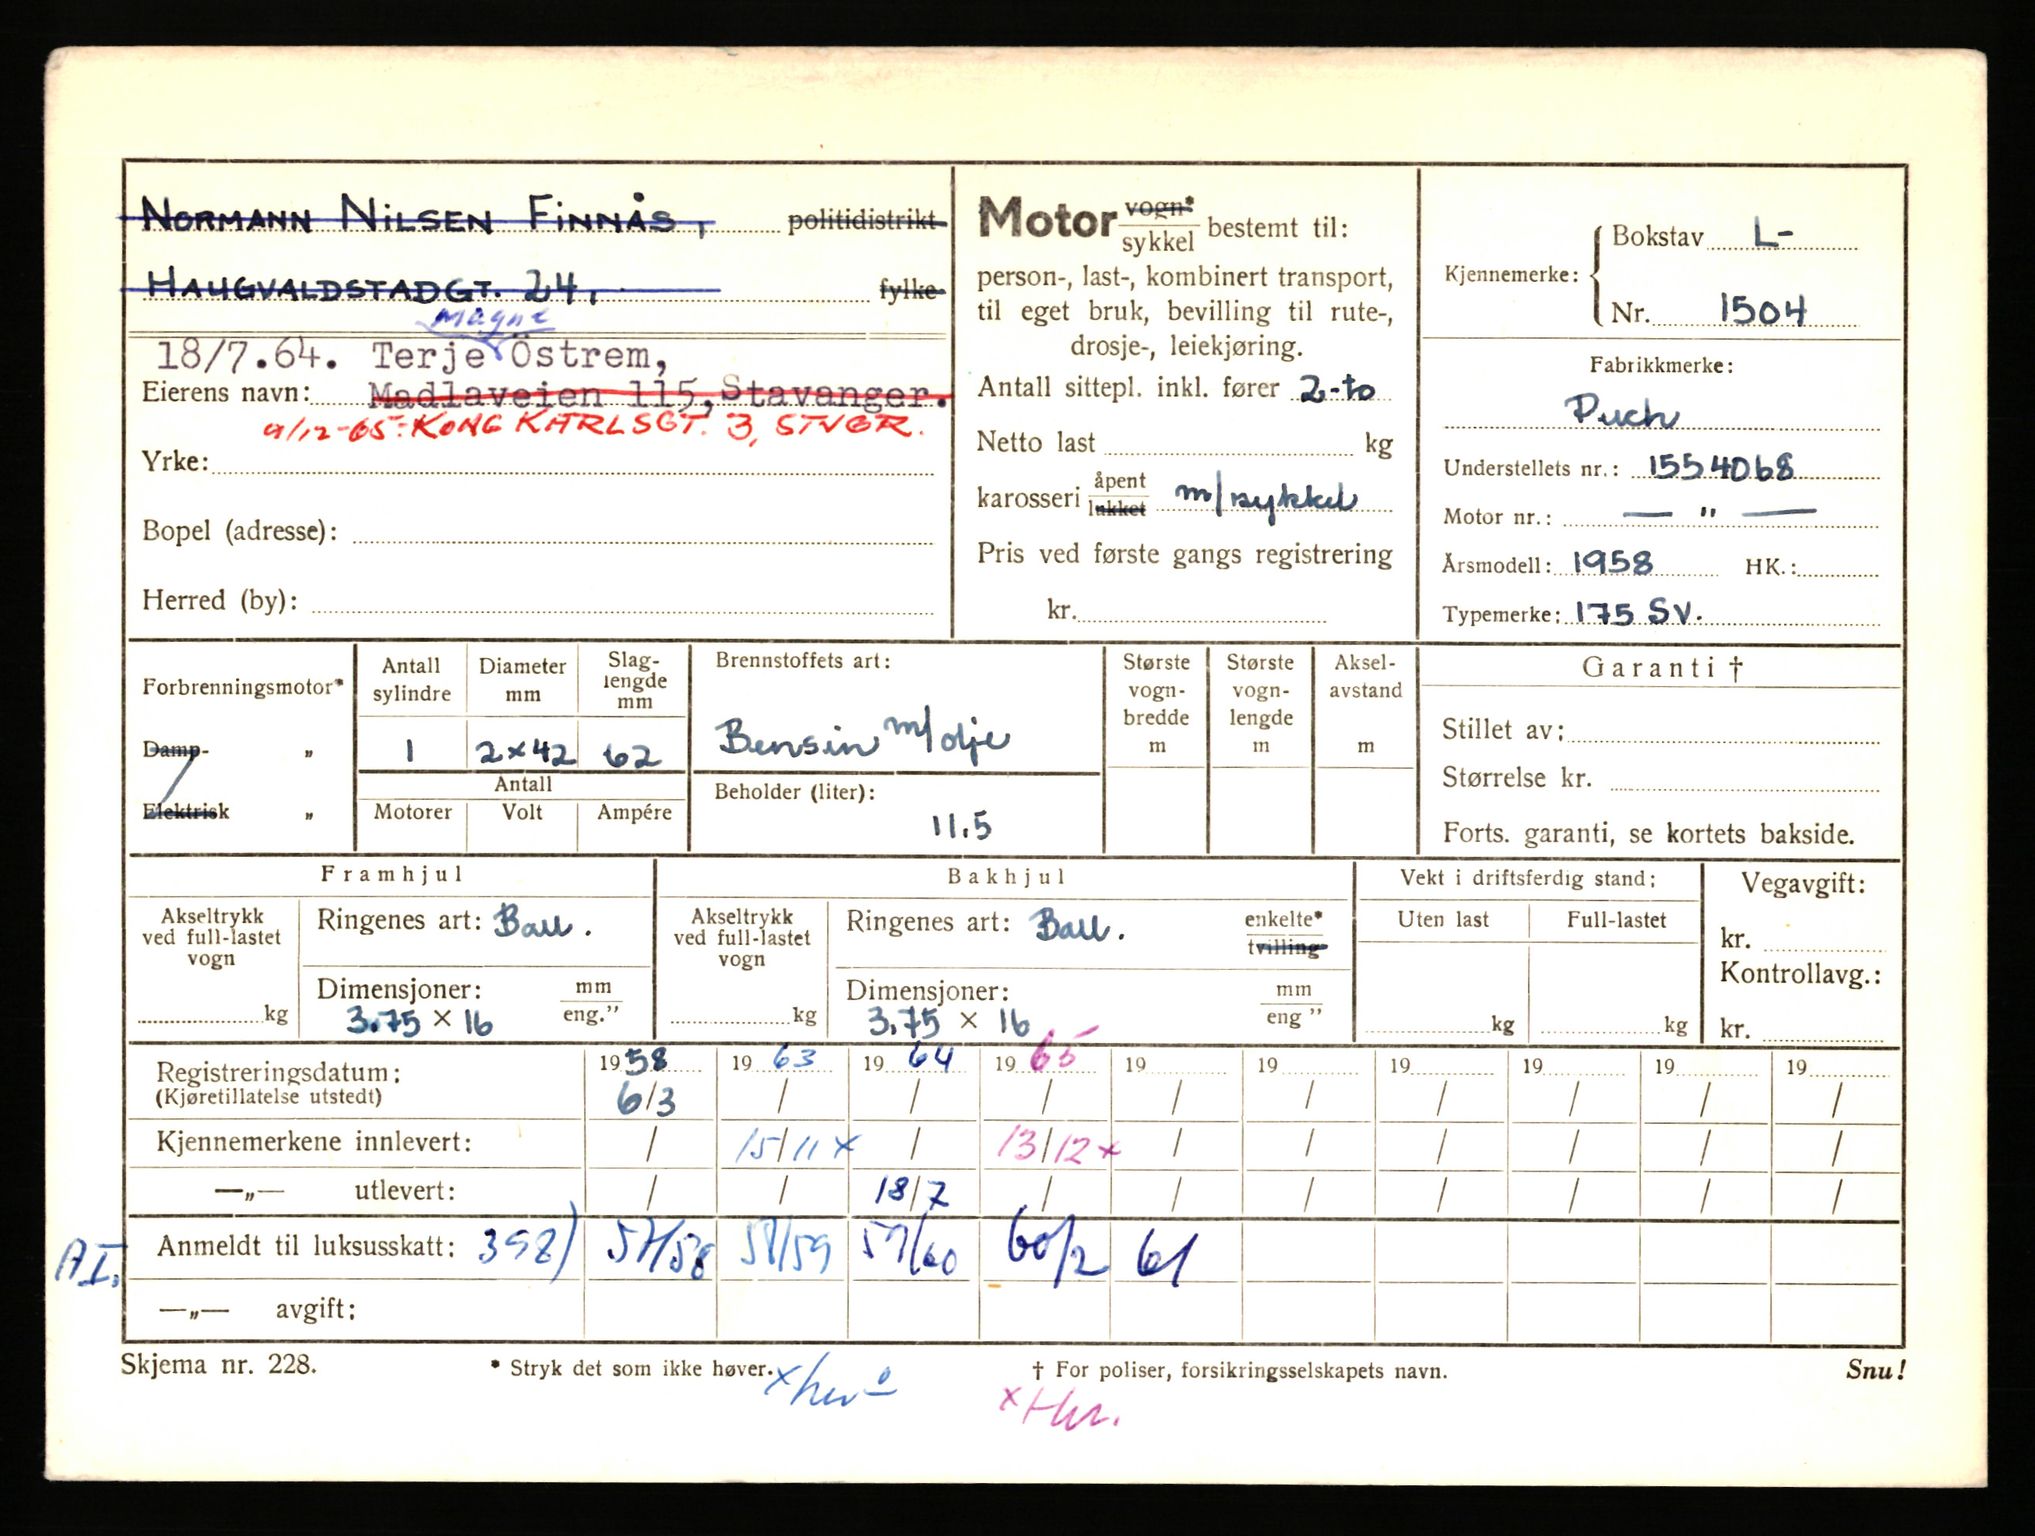 NORMANN NILSEN FINNÅS, politidistrikt
HAUGVALDSTADGT. 24, fylke
Magne
18/7.64. Terje Östrem,
Eierens navn: Madlaveien 115, Stavanger.
9/12-65: KONG KARLSGT. 3, STVGR.
Yrke:
Bopel (adresse):
Herred (by):
Motor vogn* sykkel bestemt til:
person-, last-, kombinert transport,
til eget bruk, bevilling til rute-,
drosje-, leiekjøring.
Antall sittepl. inkl. fører 2-to
Netto last kg
karosseri åpent lukket m/sykkel
Pris ved første gangs registrering
kr.
Kjennemerke: Bokstav L-
Nr. 1504
Fabrikkmerke:
Puch
Understellets nr.: 1554068
Motor nr.: — " —
Årsmodell: 1958 HK.:
Typemerke: 175 SV.
Forbrenningsmotor*
Damp- „
Elektrisk „
Antall sylindre
Diameter mm
Slag-lengde mm
1 2x42 62
Antall
Motorer Volt Ampére
Brennstoffets art:
Bensin m/olje
Beholder (liter):
11.5
Største vogn-bredde m
Største vogn-lengde m
Aksel-avstand m
Garanti †
Stillet av:
Størrelse kr.
Forts. garanti, se kortets bakside.
Framhjul
Akseltrykk ved full-lastet vogn
kg
Ringenes art: Ball.
Dimensjoner: mm eng."
3.75 x 16
Bakhjul
Akseltrykk ved full-lastet vogn
kg
Ringenes art: Ball. enkelte* tvilling
Dimensjoner: mm eng "
3.75 x 16
Vekt i driftsferdig stand:
Uten last Full-lastet
kg kg
Vegavgift:
kr.
Kontrollavg.:
kr.
Registreringsdatum: 1958 1963 1964 1965 19 19 19 19 19 19
(Kjøretillatelse utstedt) 6/3 / / / / / / / / /
Kjennemerkene innlevert: / 15/11 x / 13/12 x / / / / / /
—„— utlevert: / / 18/7 / / / / / / /
AI. Anmeldt til luksusskatt: 398) 57/58 58/59 59/60 60/2 61
—„— avgift:
Skjema nr. 228. * Stryk det som ikke høver. † For poliser, forsikringsselskapets navn. Snu!